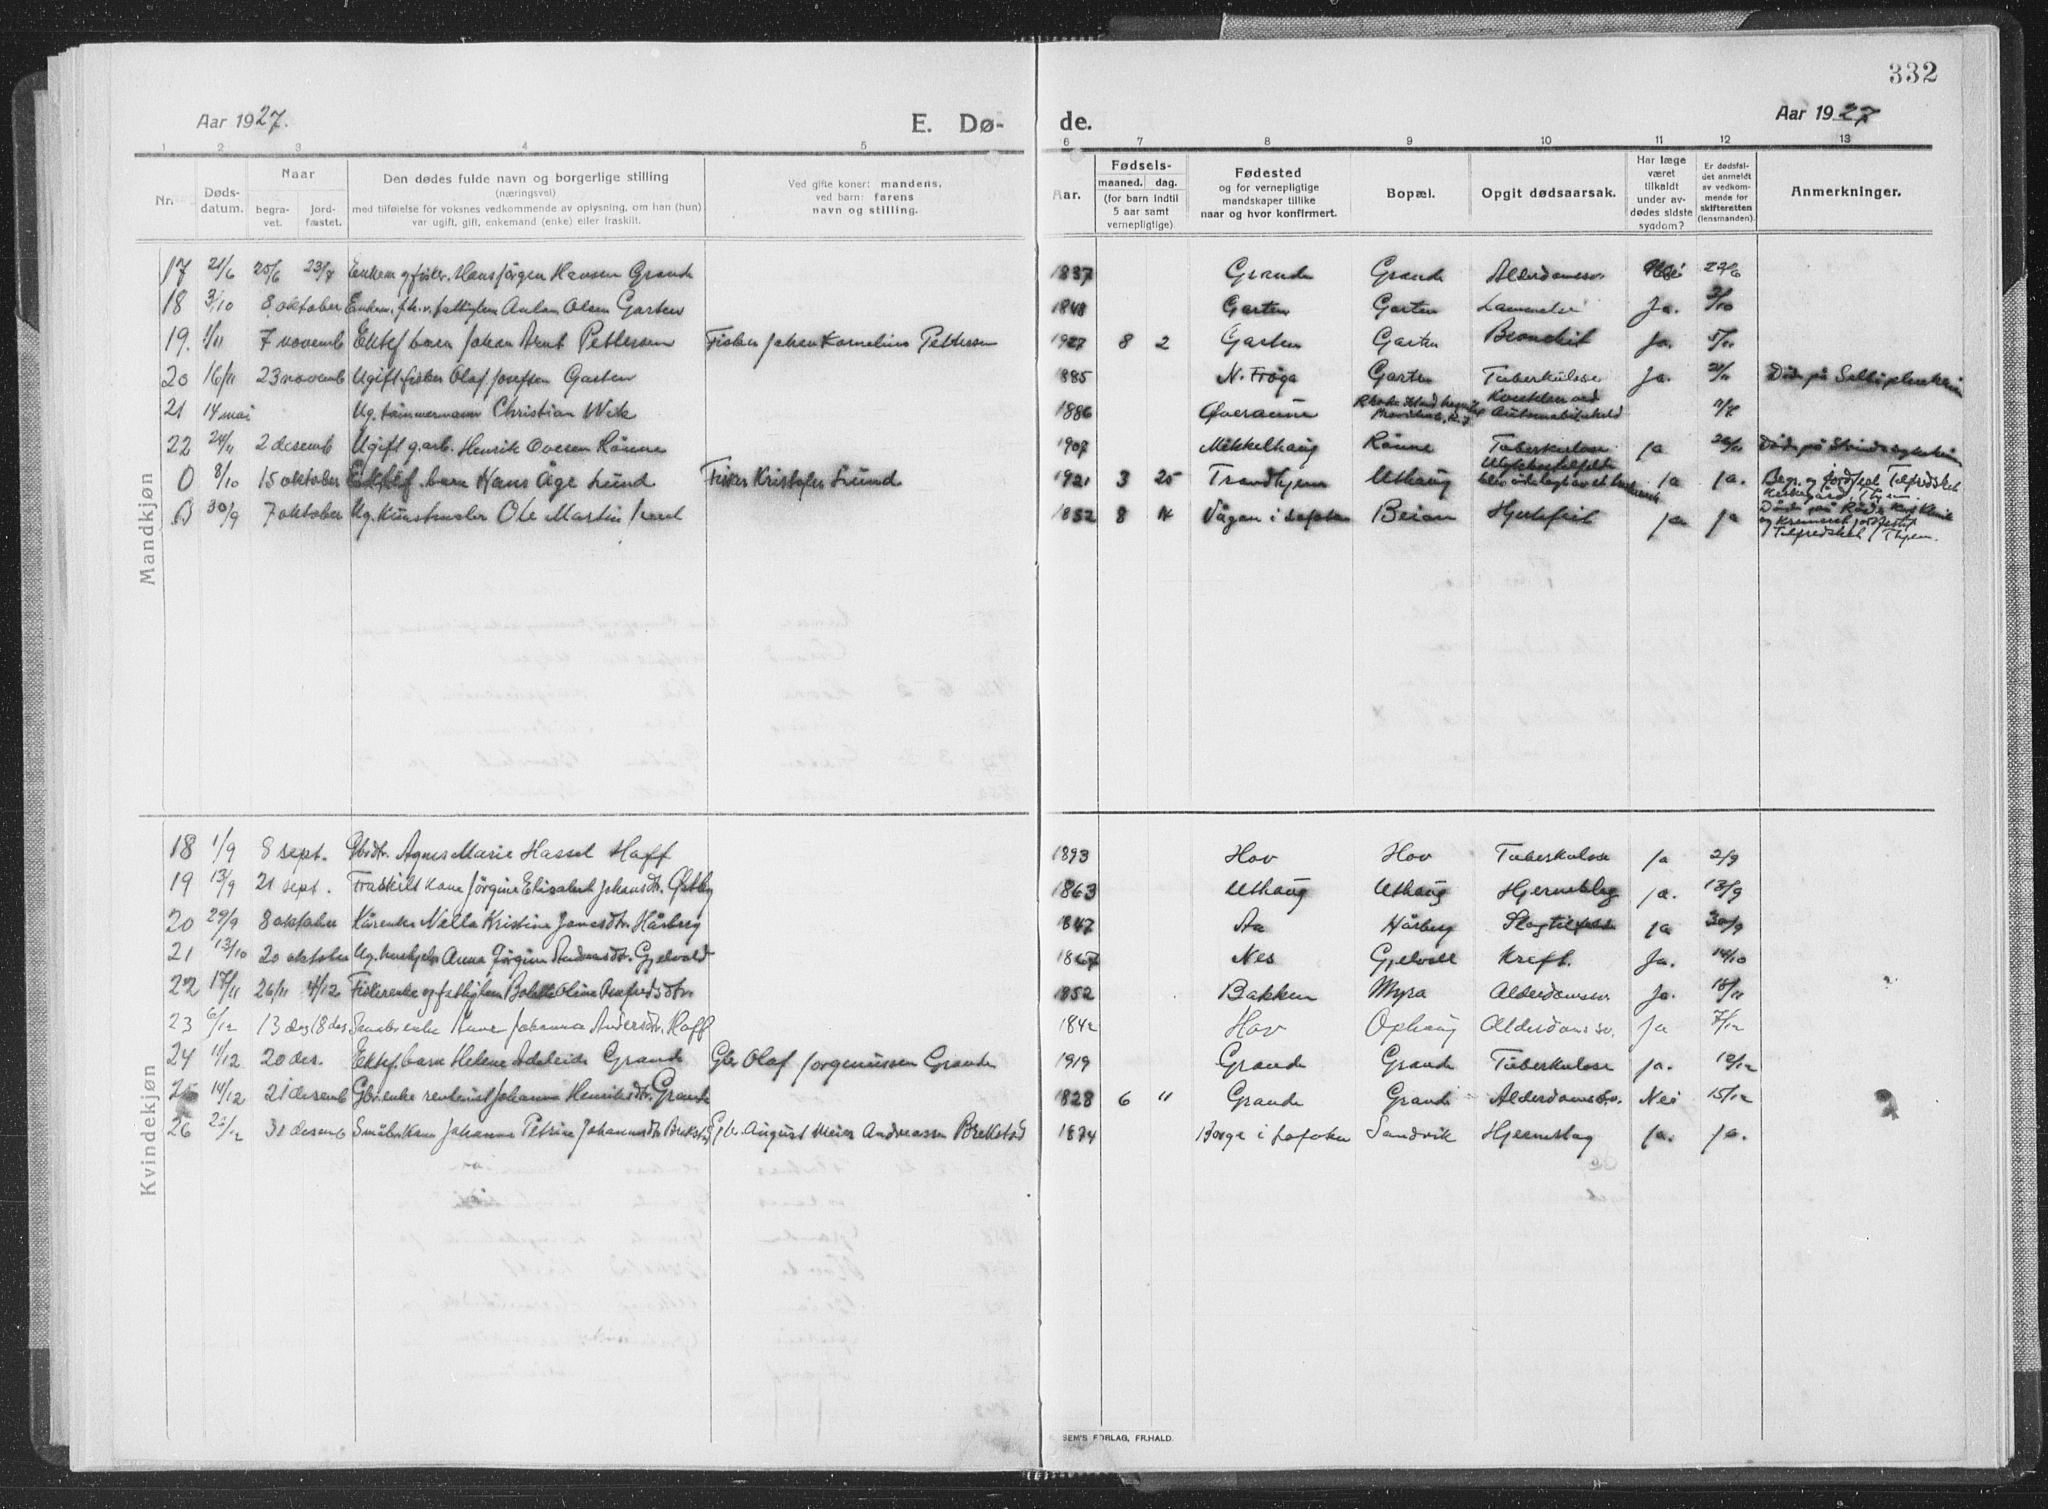 332
Aar 1927.
E. Dø-
de.
Aar 1927
1 2 3 4 5 6 7 8 9 10 11 12 13
Nr.
Døds-
datum.
Naar
begra-
vet.
jord-
fæstet.
Den dødes fulde navn og borgerlige stilling
(næringsvei)
med tilføielse for voksnes vedkommende av oplysning, om han (hun)
var ugift, gift, enkemand (enke) eller fraskilt.
Ved gifte koner: mandens,
ved barn: farens
navn og stilling.
Aar.
Fødsels-
maaned. dag.
(for barn indtil
5 aar samt
vernepligtige)
Fødested
og for vernepligtige
mandskaper tillike
naar og hvor konfirmert.
Bopæl.
Opgit dødsaarsak.
Har læge
været
tilkaldt
under av-
dødes sidste
sygdom?
Er dødsfal-
det anmeldt
av vedkom-
mende for
skifteretten
(lensmanden).
Anmerkninger.
Mandkjøn
17 21/6 25/6 23/7 Enkem og fisker Hans Jørgen Hansen Grande 1837 Grande Grande Alderdomssv. Nei 22/6
18 3/10 8 oktober Enkem. Anton Olsen Garten 1848 Garten Garten Ja. 3/10
19. 1/11 7 novemb Ektef barn Johan Arnt Pettersen Fisker Johan Kornelius Pettersen 1927 8 2 Garten Garten Bronchit Ja. 5/11
20 16/11 23 novemb Ugift fisker Olaf Josefsen Garten 1885 N. Frøya Garten Tuberkulose Ja. 21/11 Død på
21 14 mai Ug. tømmermann Christian Wik 1886 Øveraune Kvestelser ved
Automobiluheld
22 24/11 2 desemb Ugift g.arb. Henrik Ovesen Rønne 1907 Mikkelhaug Rønne Tuberkulose ja 26/11 Død på
0 8/10 15 oktober Ektef. barn Hans Åge Lund Fisker Kristofer Lund 1921 3 25 Trondhjem Uthaug Ulykkestilfelde ja ja. Begr. og jordfest Tilfredshet
0 30/9 7 oktober Ug. Kunstmaler Ole Martin 1852 8 Vågan i Lofoten Beian Hjertefeil ja ja
Tilfredshet, Thjem.
Kvindekjøn
18 1/9 8 sept. Agnes Marie Hassel Hoff 1893 Hov Hov Tuberkulose ja 2/9
19 13/9 21 sept. Fraskilt kone Jørgine Elisabet Johansdtr. Østby 1863 Uthaug Uthaug Hjerneblø ja. 13/9
20 29/9 8 oktober Kårenke Nella Kristine Jonsdtr. Hårberg 1847 Aa Hårberg Slagtilfelde ja 30/9
21 13/10 20 oktober Ug. Anna Jørgine Gjelvold 1867 Nes Gjelvold Kreft. Ja. 14/10
22 17/11 26/11 4/12 Fiskerenke og Bolette Oline 1852 Bakken Myra Alderdomssv. Ja. 18/11
23 6/12 13 des 18 des. Johanna Andersdtr. Hoff 1842 Hov Ophaug Alderdomssv. Ja 7/12
24 11/12 20 des. Ektef. barn Helene Adeleide Grande Gbr Olaf Jørgenussen Grande 1919 Grande Grande Tuberkulose ja. 12/12
25 14/12 21 desemb Gbr.enke Johanna Henriksdtr. Grande 1828 6 " Grande Grande Alderdomssv. Nei 15/12
26 31 desemb Småbr. kone Johanna Petrine Johannsdtr Brekstad Gbr. August Meier Andreassen Brekstad 1874 Borge i Lofoten Sandvik Hjerneslag ja. ja.
SEM'S FORLAG, FR.HALD.